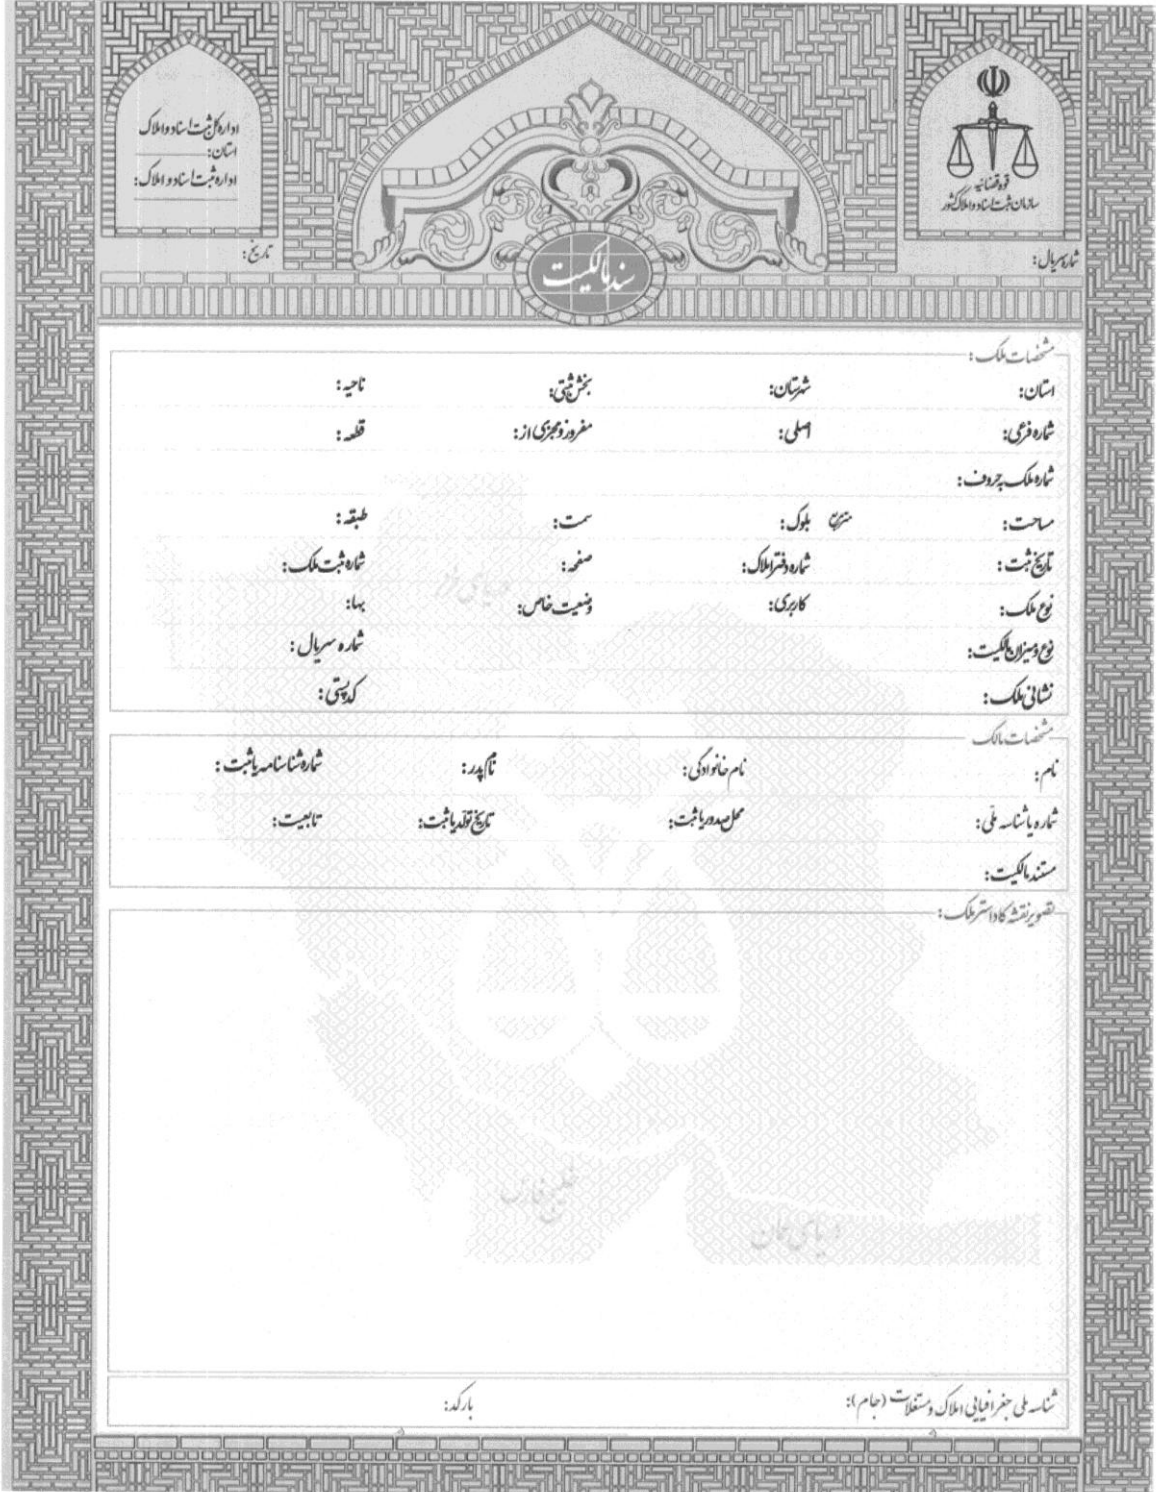 قوه قضائیه
سازمان ثبت اسناد و املاک کشور
شماره سریال:
سند مالکیت
اداره کل ثبت اسناد و املاک
استان:
اداره ثبت اسناد و املاک:
تاریخ:
مشخصات ملک:
استان: شهرستان: بخش ثبتی: ناحیه:
شماره فرعی: اصلی: مفروز و مجزی از: قطعه:
شماره ملک به حروف:
مساحت: مترمربع بلوک: سمت: طبقه:
تاریخ ثبت: شماره دفتر املاک: صفحه: شماره ثبت ملک:
نوع ملک: کاربری: وضعیت خاص: بها:
نوع و میزان مالکیت: شماره سریال:
نشانی ملک: کد پستی:
دریای خزر
مشخصات مالک
نام: نام خانوادگی: نام پدر: شماره شناسنامه یا ثبت:
شماره یا شناسه ملّی: محل صدور یا ثبت: تاریخ تولّد یا ثبت: تابعیت:
مستند مالکیت:
تصویر نقشه کاداستر ملک:
خلیج فارس
دریای عمان
شناسه ملی جغرافیایی املاک و مستغلات (جام): بارکد: